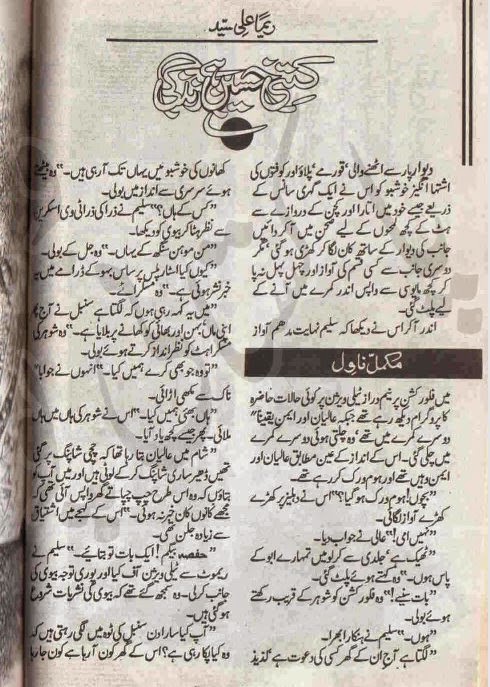 ریما علی سید
کتنی حسین ہے زندگی
دیوار پار سے اٹھنے والی ’قورمے‘ پلاؤ اور کوفتوں کی
اشتہا انگیز خوشبو کو اس نے ایک گہری سانس کے
ذریعے جیسے خود میں اتارا اور کچن کے دروازے سے
ہٹ کے پچھ لمحوں کے لیے صحن میں آ کر دائیں
جانب کی دیوار کے ساتھ کان لگا کر کھڑی ہو گئی‘ مگر
دوسری جانب سے کسی قسم کی آواز اور چہل پہل نہ پا
کر کچھ مایوسی سے واپس اندر کمرے میں آنے کے
لیے پلٹ گئی۔
اندر آ کر اس نے دیکھا کہ سلیم نہایت مدھم آواز
مکمل ناول
میں فلور کشن پر نیم دراز ٹیلی ویژن پر کوئی حالات حاضرہ
کا پروگرام دیکھ رہے تھے جبکہ عالیان اور ایمن یقیناً
دوسرے کمرے میں تھے‘ وہ چلتی ہوئی دوسرے کمرے
میں چلی گئی۔ اس کے اندازے کے عین مطابق عالیان اور
ایمن وہیں تھے اور ہوم ورک کر رہے تھے۔
”بچوں! ہوم ورک ہو گیا؟“ اس نے دہلیز پر کھڑے
کھڑے آواز لگائی۔
”نہیں امی!“ عالی نے جواب دیا۔
”ٹھیک ہے‘ جلدی سے کر لو میں تمہارے ابو کے
پاس ہوں۔“ وہ کہتے ہوئے پلٹ گئی۔
”بات سنیے!“ وہ فلور کشن کو شوہر کے قریب رکھتے
ہوئے بولی۔
”ہوں۔“ سلیم نے ہنکارا بھرا۔
”لگتا ہے آج ان کے گھر کسی کی دعوت ہے‘ لذیذ
کھانوں کی خوشبو میں یہاں تک آ رہی ہیں۔“ وہ بیٹھتے
ہوئے سرسری سے انداز میں بولی۔
”کس کے ہاں؟“ سلیم نے ذرا کی ذرا ٹی وی اسکرین
سے نظر ہٹا کر بیوی کو دیکھا۔
”من موہن سنگھ کے یہاں۔“ وہ جل کے بولی۔
”کیوں کیا اسٹار پلس پر ساس بہو کے ڈرامے میں یہ
خبر نشر ہوئی ہے۔“ وہ مسکرائے۔
”میں یہ کہہ رہی ہوں کہ لگتا ہے سنبل نے آج پھر
اپنی ماں بہن اور بھائی کو کھانے پر بلایا ہے۔“ وہ شوہر کی
مسکراہٹ کو نظر انداز کرتے ہوئے بولی۔
”تو وہ جو بھی کرے ہمیں کیا۔“ انہوں نے جواباً
ناک سے مکھی اڑائی۔
”ہاں بھئی ہمیں کیا۔“ اس نے شوہر کی ہاں میں ہاں
ملائی۔ پھر جیسے کچھ یاد آیا۔
”شام میں عالیان بتا رہا تھا کہ چچی شاپنگ پر گئی
تھیں ڈھیر ساری شاپنگ کر کے لوٹی ہیں اور میں آپ کو
بتاؤں کہ وہ اس طرح چپ چپاتے گھر واپس آئی تھی کہ
مجھے کانوں کان خبر نہ ہوئی۔“ اس کے لہجے میں اشتیاق
سے زیادہ جلن تھی۔
”حفصہ بیگم! ایک بات تو بتائیے۔“ سلیم نے
ریموٹ سے ٹیلی ویژن آف کیا اور پوری توجہ بیوی کی
جانب کر لی۔ وہ سمجھ گئے تھے کہ بیوی کی نشریات شروع
ہو گئی ہیں۔
”آپ کیا سارا دن سنبل کی ٹوہ میں لگی رہتی ہیں کہ
وہ کیا پکا رہی ہے؟ اس کے گھر کون آ رہا ہے کون جا رہا